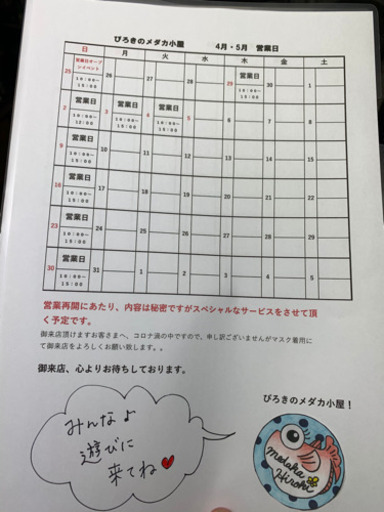 ぴろきのメダカ小屋 4月・5月 営業日
日 月 火 水 木 金 土
25 営業日オープンイベント 10:00〜15:00 26 27 28 29 営業日 10:00〜15:00 30 1
2 営業日 10:00〜12:00 3 営業日 10:00〜15:00 4 営業日 10:00〜15:00 5 6 7 8
9 営業日 10:00〜15:00 10 11 12 13 14 15
16 営業日 10:00〜15:00 17 18 19 20 21 22
23 営業日 10:00〜15:00 24 25 26 27 28 29
30 営業日 10:00〜15:00 31 1 2 3 4 5
営業再開にあたり、内容は秘密ですがスペシャルなサービスをさせて頂
く予定です。
御来店頂けますお客さまへ、コロナ渦の中ですので、申し訳ございませんがマスク着用に
て御来店をよろしくお願い致します。。
御来店、心よりお待ちしております。
ぴろきのメダカ小屋!
みんなよ
遊びに
来てね
medaka
Hiroki